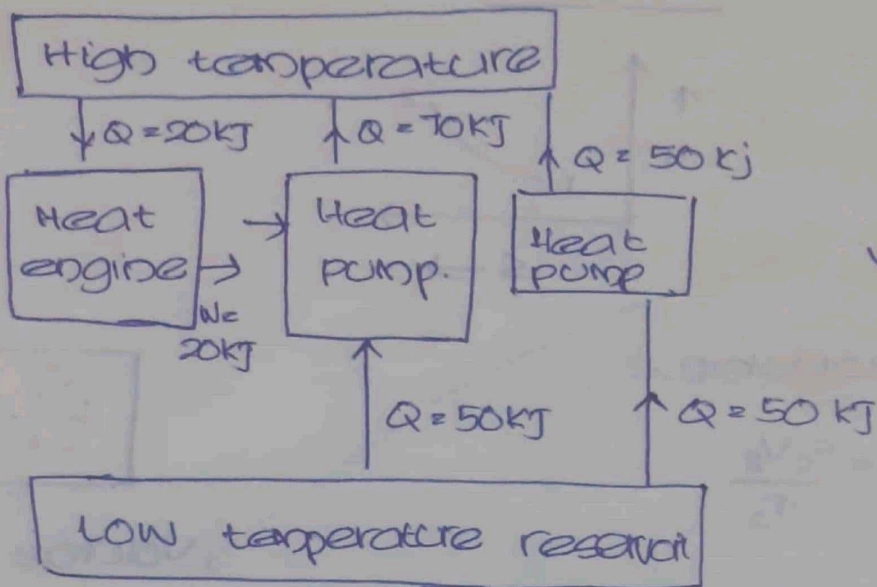 High temperature
Q = 20KJ
Q = 70KJ
Q = 50 Kj
Heat
engine
Heat
pump.
Heat
pump
W=
20KJ
Q = 50KJ
Q = 50 KJ
LOW temperature reservoir